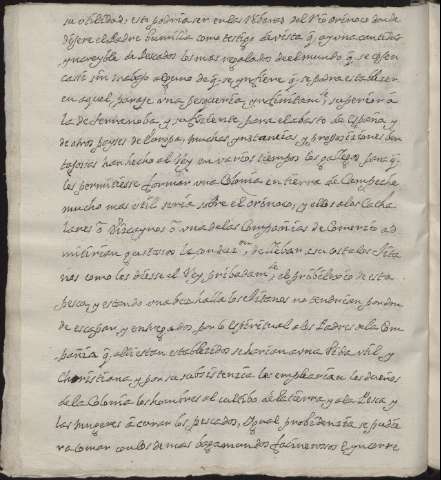 su utilidad; esta podria ser en las Riberas del Rio orinoco donde
refiere el Padre Gumilla como testigo de vista q.e ay una cantidad
yncreyble de Pescados los mas regalados de el mundo q.e se pescan
casi sin trabajo alguno de q.e se ynfiere q.e se podria establecer
en aquel paraje una pesqueria ynfinitam.te superior à
la de terranoba, y suficiente para el abasto de España y
de otros payses de Europa, muchas ynstancias y proposiciones ben
tajosas han hecho al Rey en varios tiempos los gallegos para q.e
les permitiesse formar una Colonia en tierra de Campeche
mucho mas util seria sobre el orinoco, y ellos ò los Catha
lanes ò Vizcaynos ò una de las Compañias de Comercio ad
mitirian gustosos la conduz.on, de llebar a su costa los Gita
nos como les diesse el Rey pribatam.te, el probecho de esta
pesca, y estando una bez halla los Gitanos no tendrian por don
de escapar, y entregados por lo espiritual a los Padres de la Com
pañia q.e alli estan establecidos se harian a una Vida util, y
Christiana, y por su subsistenzia los emplearian los dueños
de la Colonia los hombres al cultibo de la tierra, y a la Pesca y
las mugeres à curar los pescados, Ygual probidenzia se pudie
ra tomar con los demas bagamundos facinerosos q.e